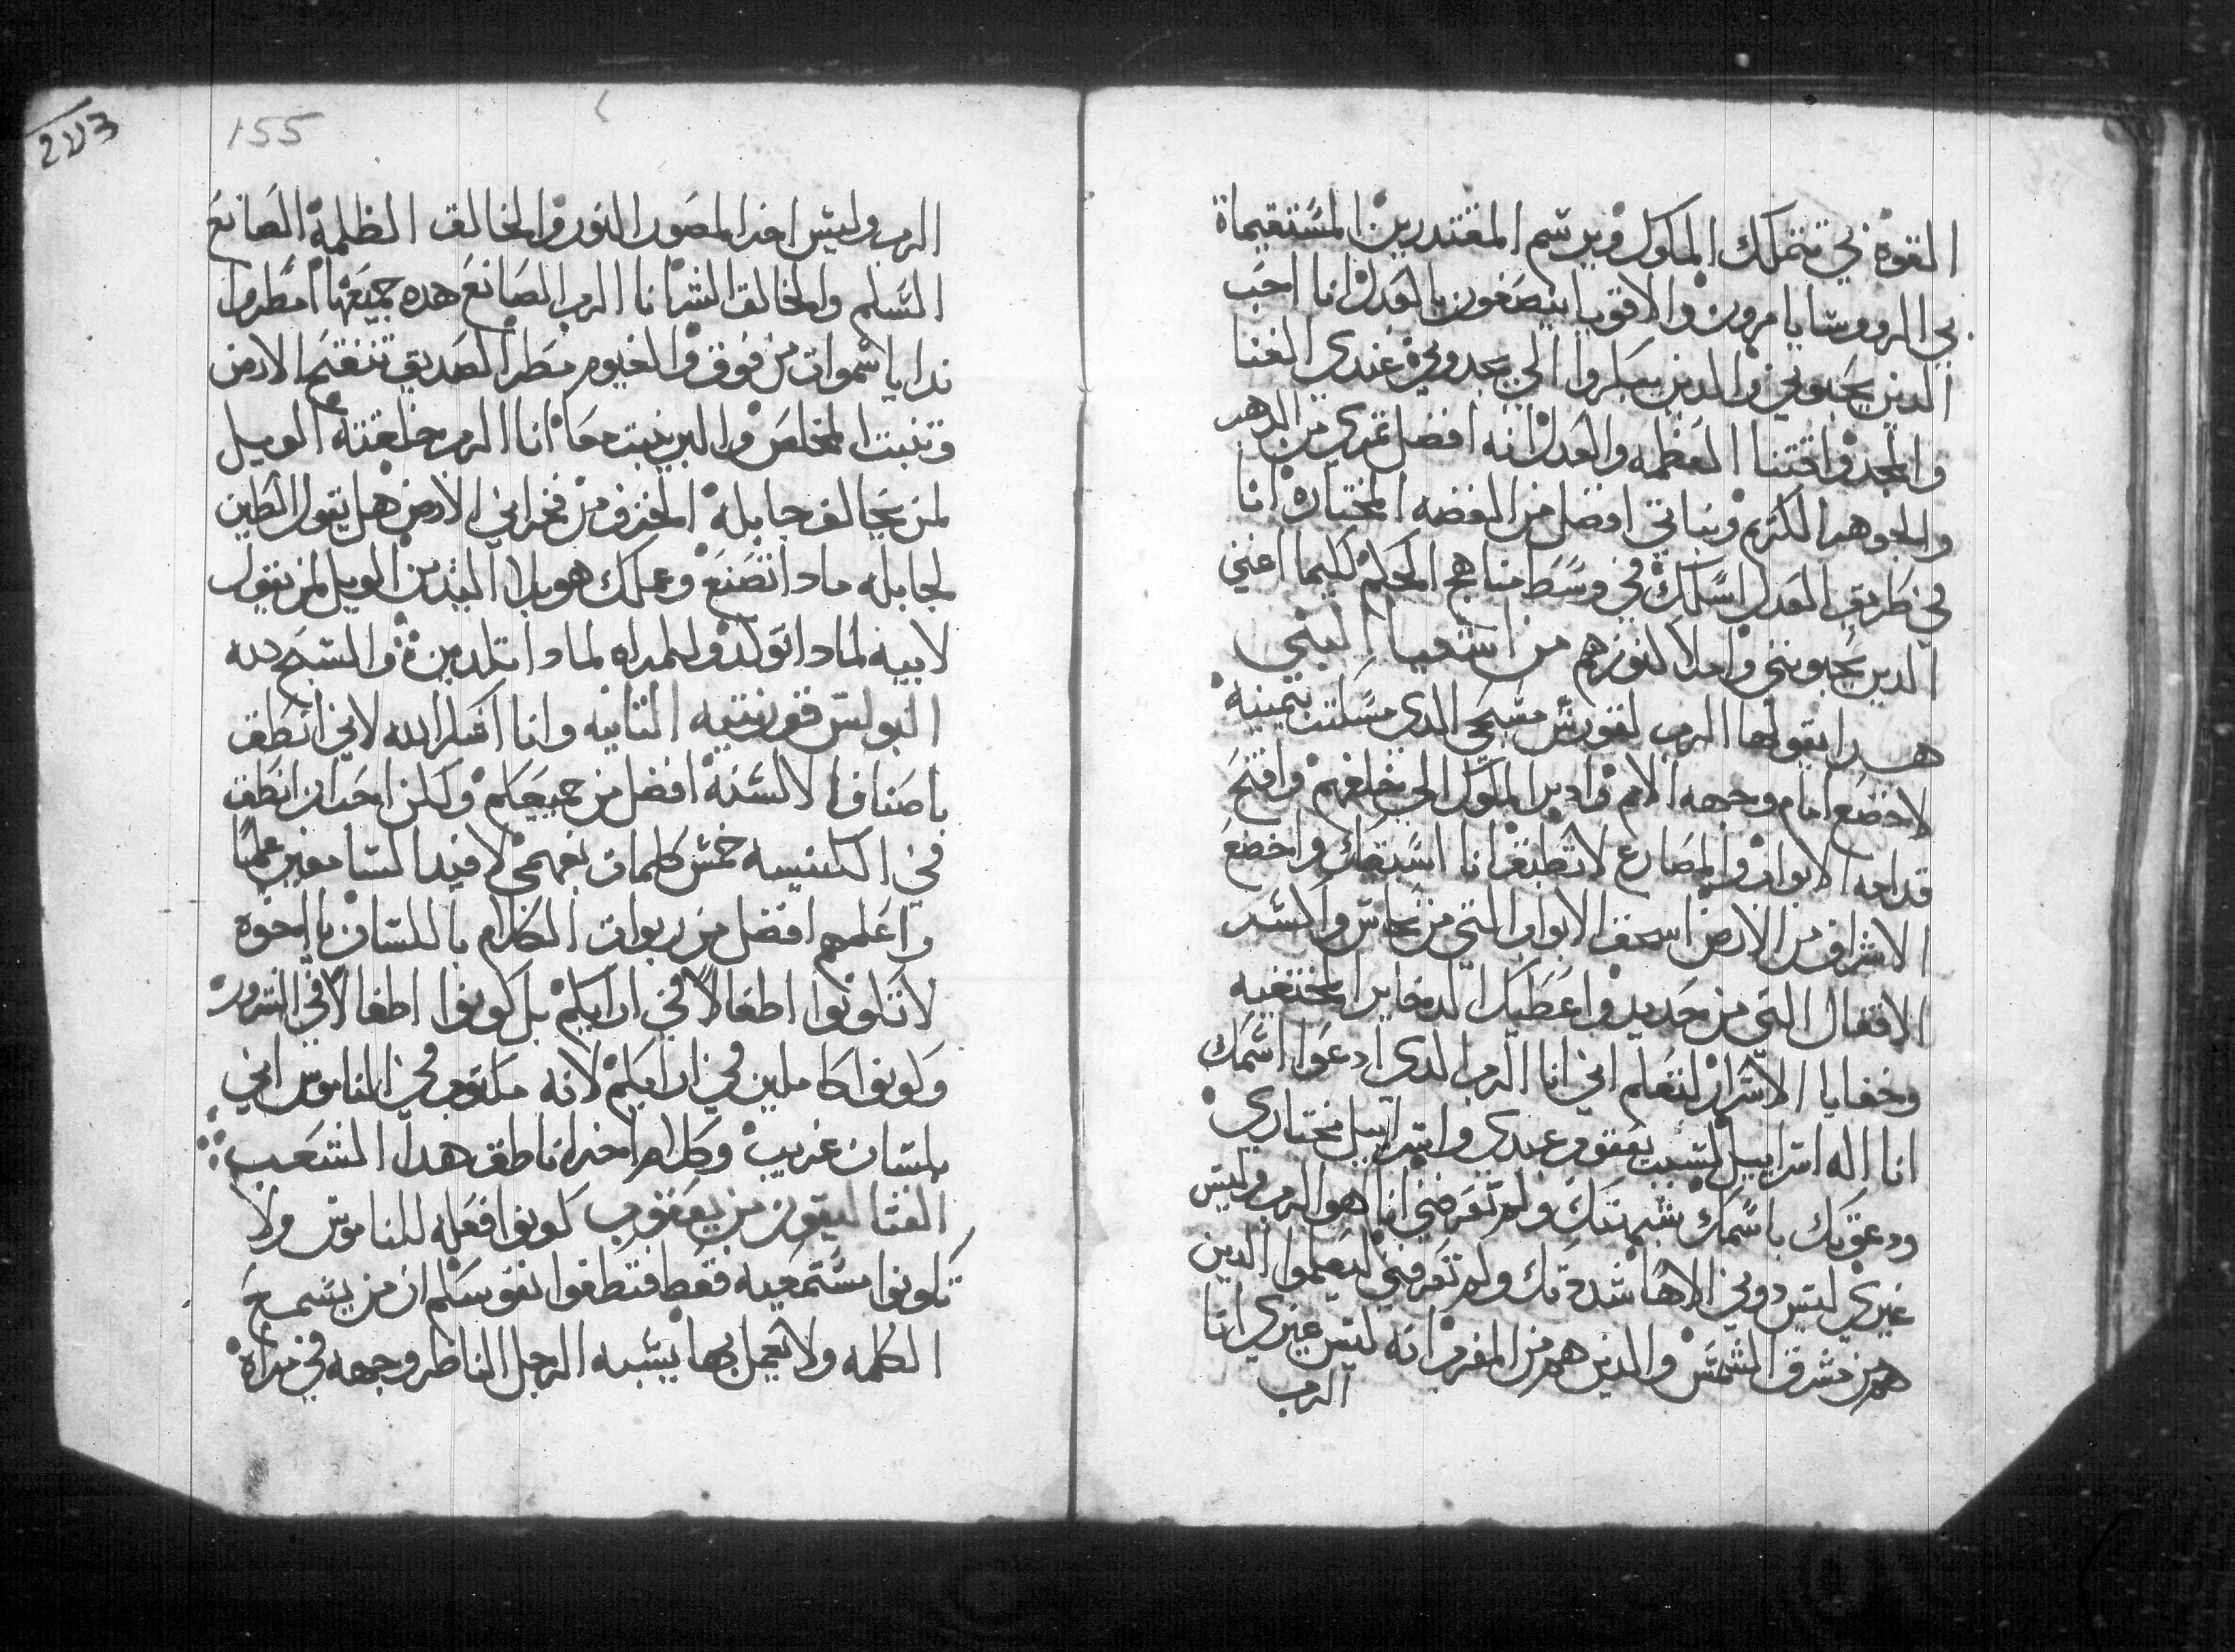 القوة بي تتملك الملوك وبرسم المقتدرين المستقيماة
بي الروسا يامرون والاقويا ينصفون بالعدل انا احب
الدين يحبوني والدين يبكروا الي يجدوني عندي الغنا
والمجد واقتنا العظمه والعدل انه افضل تمري من الدهب
والجوهر الكريم ونباتي افضل من الفضه المختارة انا
في طريق العدل اسلك في وسط مناهج الحكم لكيما اغني
الدين يحبونني واملا كنوزهم من اشعيا النبي
هدا يقولها الرب لقورش مسيحي الدي مسكت بيمينه
لاخضع امام وجهه الامم وادير الملوك الي خلفهم وافتح
قدامه الابواب والمصارع لا تطبق انا اسبقك واخضع
الاشراف من الارض اسحق الابواب التي من نحاس واكسر
الاقفال التي من حديد واعطيك الدخاير المختفيه
وخفايا الاسرار لتعلم اني انا الرب الدي ادعوا اسمك
انا اله اسراييل لسبب يعقوب عبدي واسراييل مختاري
ودعوتك باسمك شبهتك ولم تعرفني انا هو الرب وليس
غيري ليس دوني الاها شددتك ولم تعرفني ليعلموا الدين
هم من مشرق الشمس والدين هم من المغرب انه ليس غيري انا
الرب
155
203
الرب وليس اخر المصور النور والخالق الظلمة الصانع
السلم والخالق الشر انا الرب الصانع هده جميعها امطروا
ندا يا سموات من فوق والغيوم مطر الصديق تنفتح الارض
وتنبت المخلص والبر ينبت معا انا الرب خلقته الويل
لمن يخالف جابله الخزف من فخراني الارض هل يقول الطين
لجابله مادا تصنع وعملك هو بلا اليدين الويل لمن يقول
لابيه لمادا تولد وللمراه لمادا تلدين والسبح لله
البولس قورنتيه التانيه وانا اشكر الله لاني انطق
باصناف الالسنة افضل من جميعكم ولكن احب ان انطق
في الكنيسه خمس كلمات بفهمي لافيد السامعين علما
واعلمهم افضل من ربوات الكلام باللسان يا اخوه
لا تكونوا اطفالا في ارايكم بل كونوا اطفالا في الشرور
وكونوا كاملين في ارايكم لانه مكتوب في الناموس اني
بلسان غريب وكلام اخر اناطق هدا الشعب
القتاليقون من يعقوب كونوا فعله للناموس ولا
تكونوا مستمعيه فقط فتطغوا نفوسكم ان من يسمع
الكلمه ولا يعمل بها يشبه الرجل الناظر وجهه في مراة